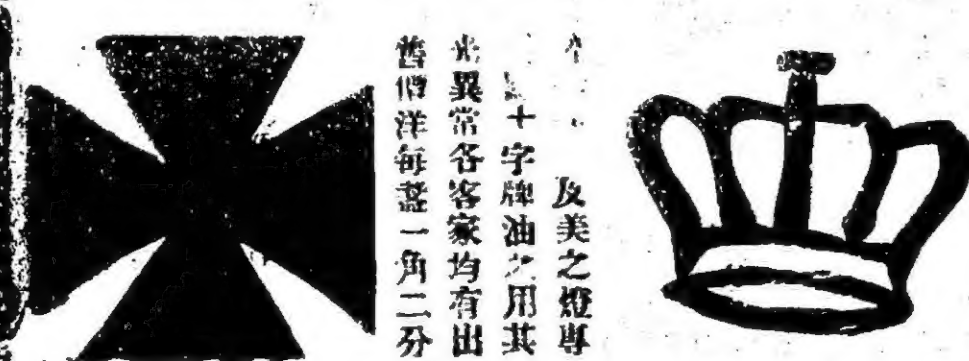 及美之燈專
十字牌油之用其
光異常各客家均有出
售價洋每盞一角二分